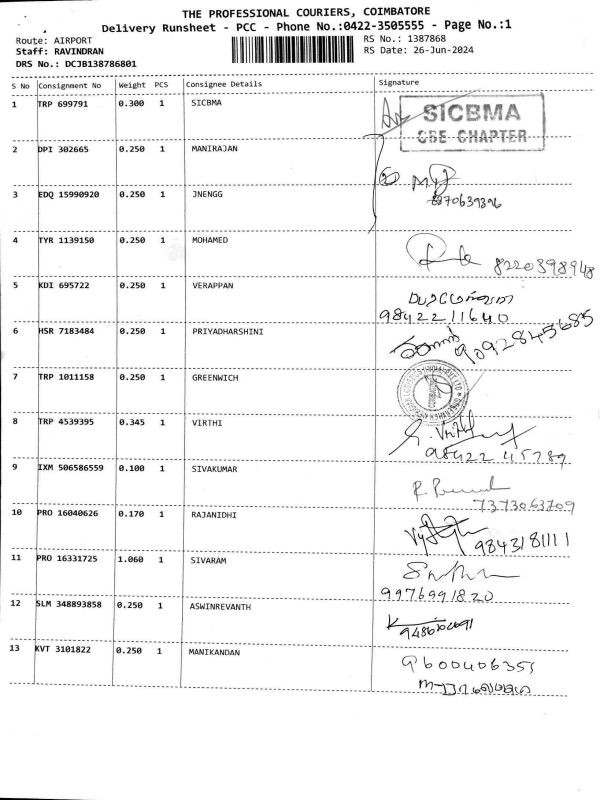 THE PROFESSIONAL COURIERS, COIMBATORE
Delivery Runsheet - PCC - Phone No.:0422-3505555 - Page No.:1
Route: AIRPORT RS No.: 1387868
Staff: RAVINDRAN RS Date: 26-Jun-2024
DRS No.: DCJB138786801
S No Consignment No Weight PCS Consignee Details Signature
1 TRP 699791 0.300 1 SICBMA
SICBMA
CBE CHAPTER
2 DPI 302665 0.250 1 MANIRAJAN
3 EDQ 15990920 0.250 1 JNENGG
4 TYR 1139150 0.250 1 MOHAMED
8220398948
5 KDI 695722 0.250 1 VERAPPAN
9842211640
6 HSR 7183484 0.250 1 PRIYADHARSHINI
9092845685
7 TRP 1011158 0.250 1 GREENWICH
8 TRP 4539395 0.345 1 VIRTHI
98422 45789
9 IXM 506586559 0.100 1 SIVAKUMAR
7373063709
10 PRO 16040626 0.170 1 RAJANIDHI
9843181111
11 PRO 16331725 1.060 1 SIVARAM
9976991820
12 SLM 348893858 0.250 1 ASWINREVANTH
13 KVT 3101822 0.250 1 MANIKANDAN
9600406351